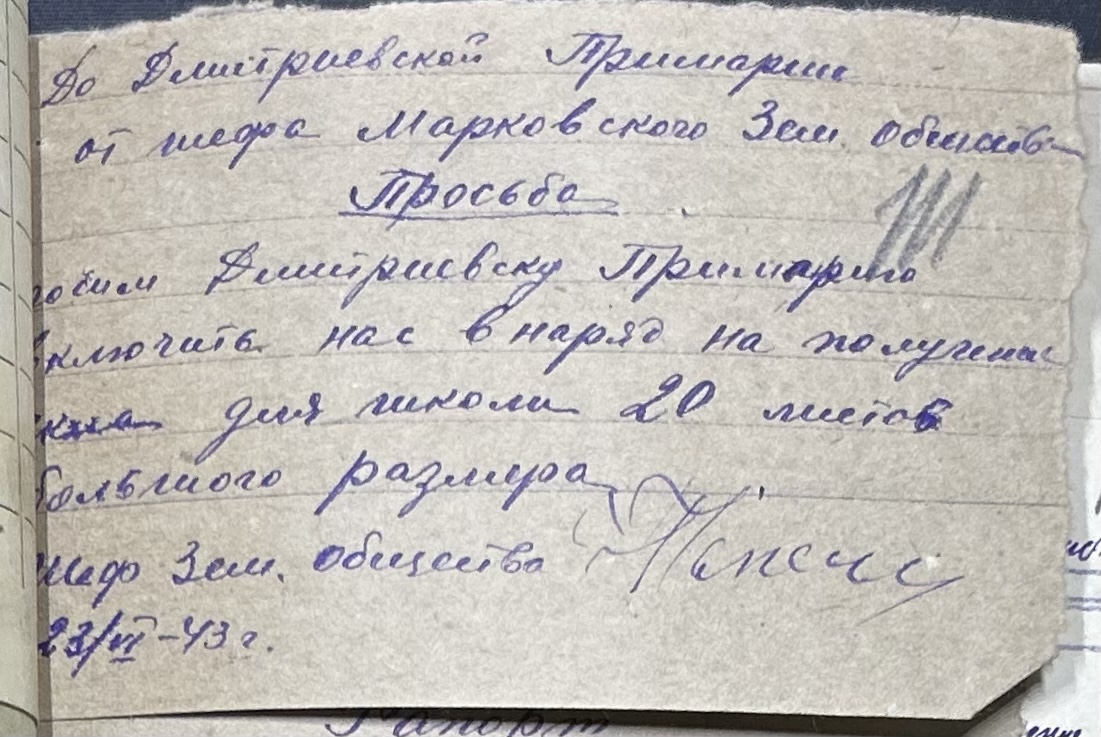 До Дмитриевской Примарии
от шефа Марковского Зем. обществ
Просьба
росим Дмитриевску Примарию
включить нас в наряд на получение
для школи 20 листов
большого размера
Шеф Зем. общества
23/VI-43 г.
Рапорт